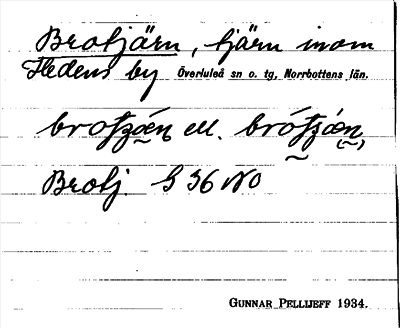 Brotjärn, tjärn inom
Hedens by Överluleå sn o. tg, Norrbottens län.
ell.
Brotj. G 36 NO
GUNNAR PELLIJEFF 1934.